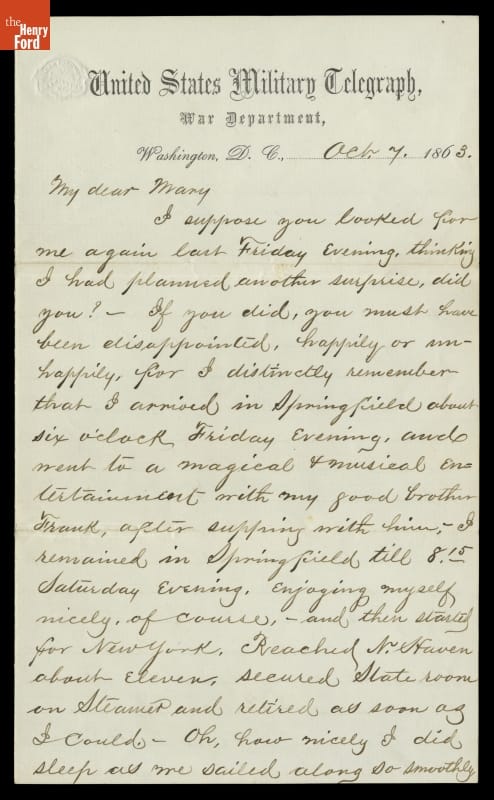 the
Henry
Ford
United States Military Telegraph,
War Department,
Washington, D. C., Oct. 7. 1863.
My dear Mary
I suppose you looked for
me again last Friday Evening, thinking
I had planned another surprise, did
you? – If you did, you must have
been disappointed, happily or un-
happily, for I distinctly remember
that I arrived in Springfield about
six o'clock Friday Evening, and
went to a magical & musical En-
tertainment with my good brother
Frank, after supping with him, – I
remained in Springfield till 8.15
Saturday Evening, Enjoying myself
nicely, of course, – and then started
for New York. Reached N. Haven
about Eleven, secured State room
on Steamer and retired as soon as
I could – Oh, how nicely I did
sleep as we sailed along so smoothly